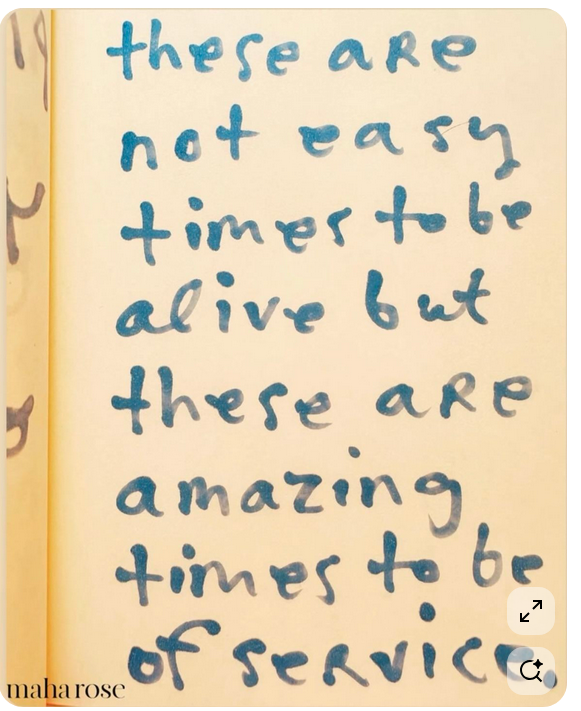 these are
not easy
times to be
alive but
these are
amazing
times to be
of service.
maharose